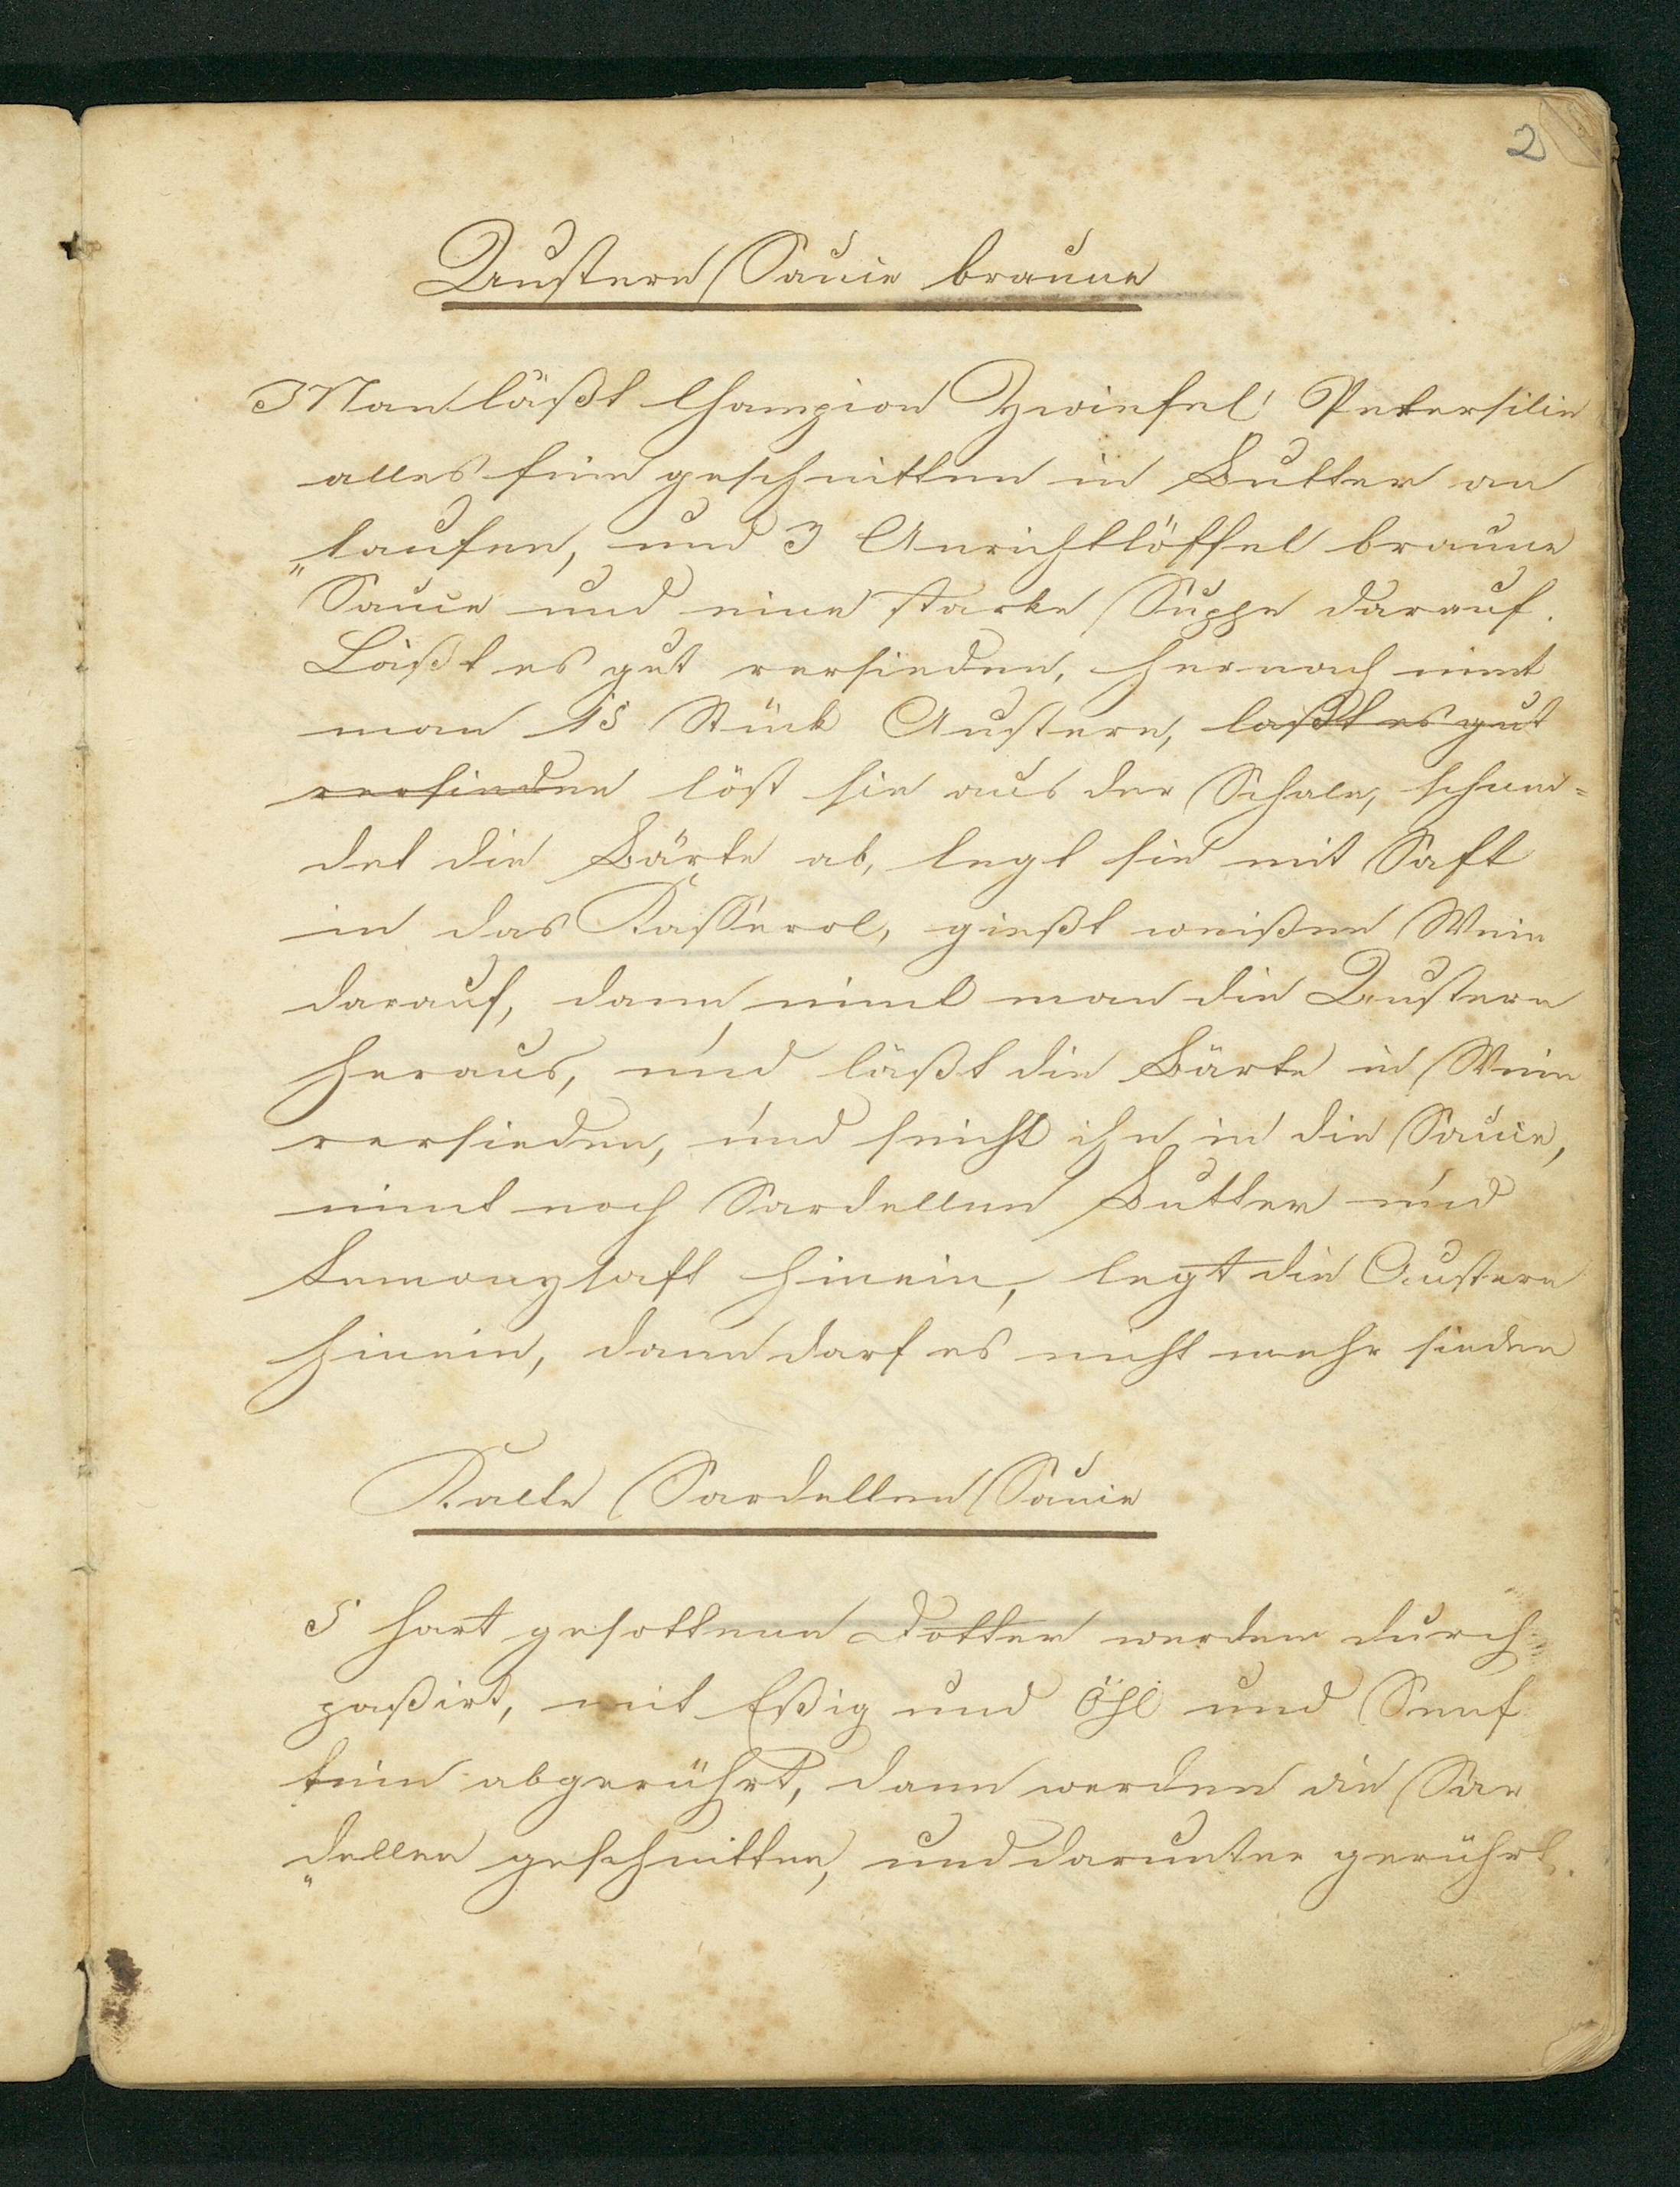 2
Austern Sauce braune
Man läßt Champion Zwiefel Petersilie
alles fein geschnitten in Butter an
„laufen, und 3 Anrichtlöffel braune
Sauce und eine starke Suppe darauf.
Läßt es gut versieden, hernach nimt
man 15 Stück Austern, laßt es gut
versieden löst sie aus der Schale, schnei=
det die Bärte ab, legt sie mit Saft
in das Kasserol, gießt weißen Wein
darauf, dann nimt man die Austern
heraus, und läßt die Bärte in Wein
versieden, und seicht ihn in die Sauce,
nimt noch Sardellen Butter und
Lemonysaft hinein, legt die Austern
hinein, dann darf es nicht mehr sieden
Kalte Sardellen Sauce
5 hart gesottene Dotter werden durch=
paßirt, mit Eßig und Öhl und Senf
fein abgerührt, dann werden die Sar
„dellen geschnitten, und darunter gerührt.